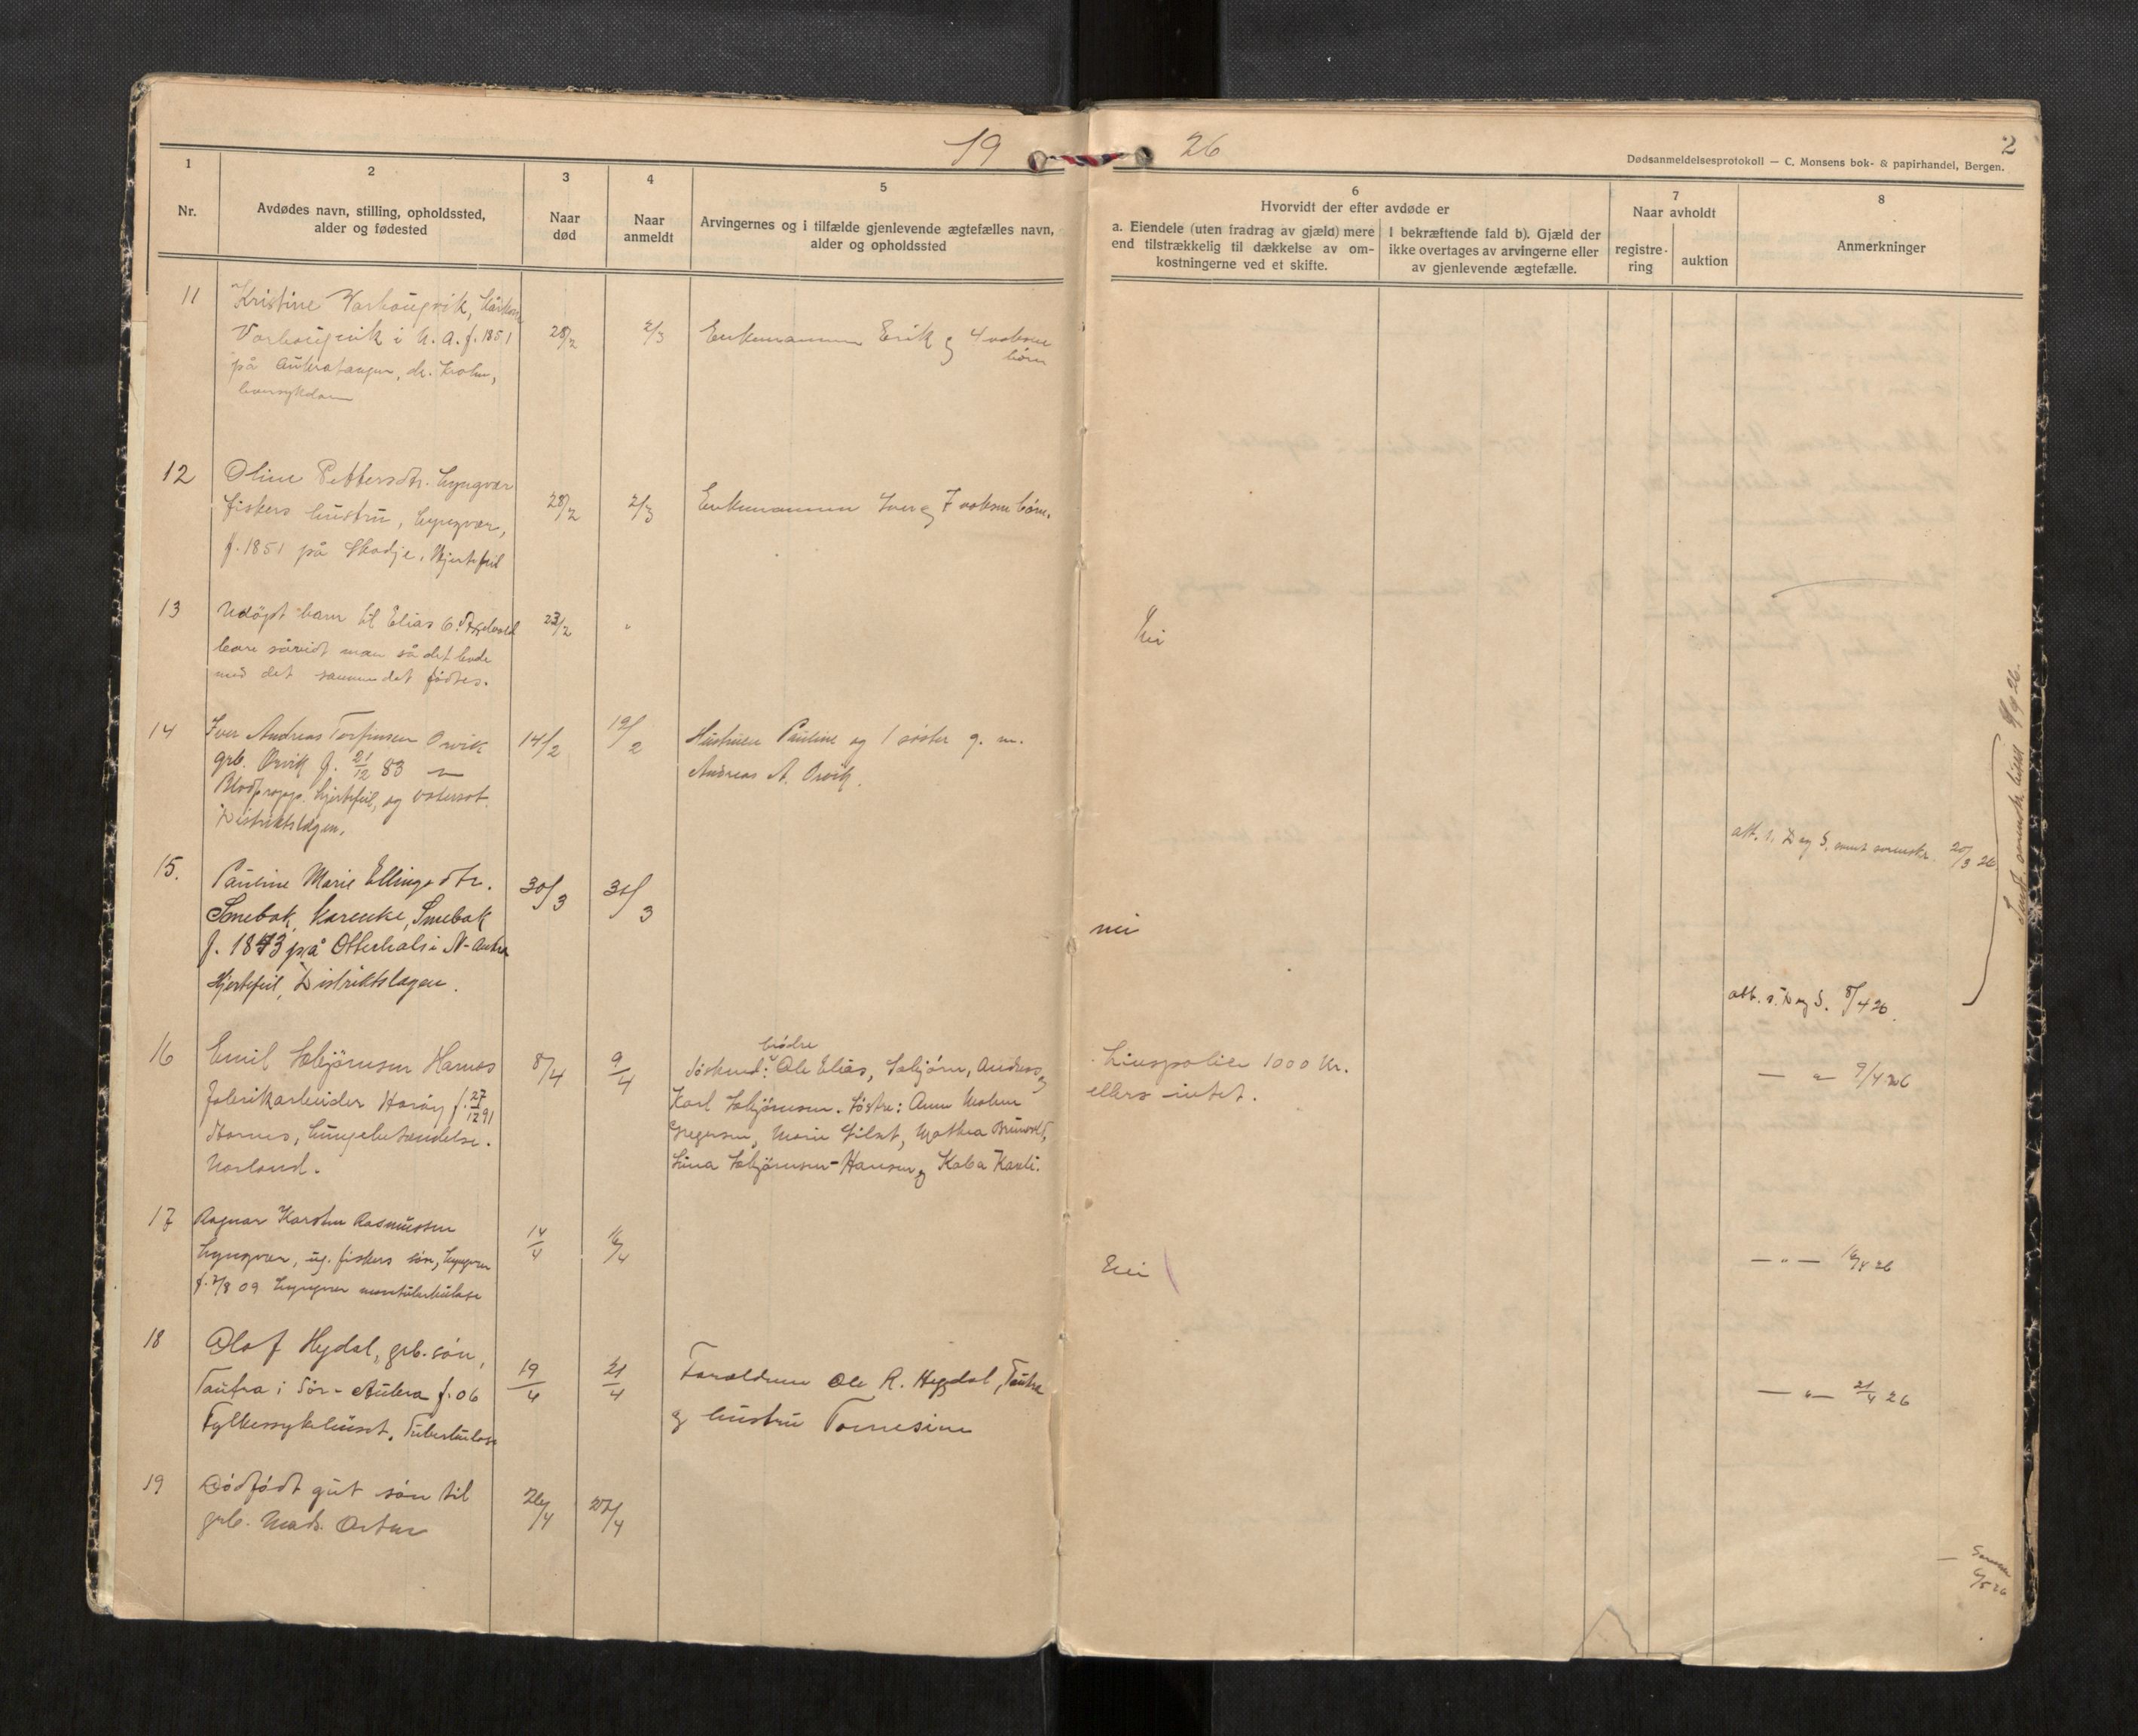 19 26 2
Dødsanmeldelsesprotokoll — C. Monsens bok- & papirhandel, Bergen.
1 2 3 4 5 6 7 8
Nr.
Avdødes navn, stilling, opholdssted,
alder og fødested
Naar
død
Naar
anmeldt
Arvingernes og i tilfælde gjenlevende ægtefælles navn,
alder og opholdssted
Hvorvidt der efter avdøde er
a. Eiendele (uten fradrag av gjæld) mere
end tilstrækkelig til dækkelse av om-
kostningerne ved et skifte.
I bekræftende fald b). Gjæld der
ikke overtages av arvingerne eller
av gjenlevende ægtefælle.
Naar avholdt
registre-
ring
auktion
Anmerkninger
11
Kristine Varhougvik,
Varhougvik i N. A. f. 1851
på
28/2
2/3
Enkemannen Erik og 4 voksne
børn
12
Oline Pettersdtr. Lyngvær
fiskers hustru, Lyngvær,
f. 1851 på Skodje. Hjertefeil
28/2
2/3
Enkemannen Iver og 7 voksne børn.
13
Udøpt barn til Elias
bare såvidt man så det levde
med det samme det fødtes.
23/2
"
Nei
14
Iver Andreas Torfinsen Orvik
grb. Orvik f. 21/12 83
Blodpropp. Hjertefeil, og vatersot.
Distriktslægen.
14/2
19/2
Hustruen Pauline og 1 søster g. m.
Andreas A. Orvik.
att. s. D og S. samt 20/3 26
15.
Pauline Marie Ellingsdtr.
Smebak, karenke, Smebak
f. 1873 på Otterhals i N-Autra
Hjertefeil, Distriktslægen.
30/3
31/3
nei
att. s. D og S. 8/4 26.
16
Emil Sæbjörnsen Harnes
Fabrikarbeider Harøy f. 27/12 91
Harnes, Lungebetændelse.
Norland.
8/4
9/4
brødre
Søskend: Ole Elias, Sæbjørn, Andreas og
Karl Sæbjörnsen. Söstre: Anne Malene
Gregersen, Marie Gilset, Mathea
Lina Sæbjörnsen-Hansen og
Livspolise 1000 Kr.
ellers intet.
— " — 9/4 26
17
Ragnar Karsten Rasmussen
Lyngvær, ug. fiskers søn, Lyngvær
f. 2/8 09 Lyngvær
14/4
16/4
Nei
— " — 16/4 26
18
Olaf Hegdal, grb. søn,
Tautra i Sör-Aukra f. 06
Fylkessykehuset. Tuberkulose
19/4
21/4
Foreldrene Ole R. Hegdal, Tautra
og hustru Tomesine
— " — 21/4 26
19
Dödfödt gut sön til
grb. Mads
26/4
27/4